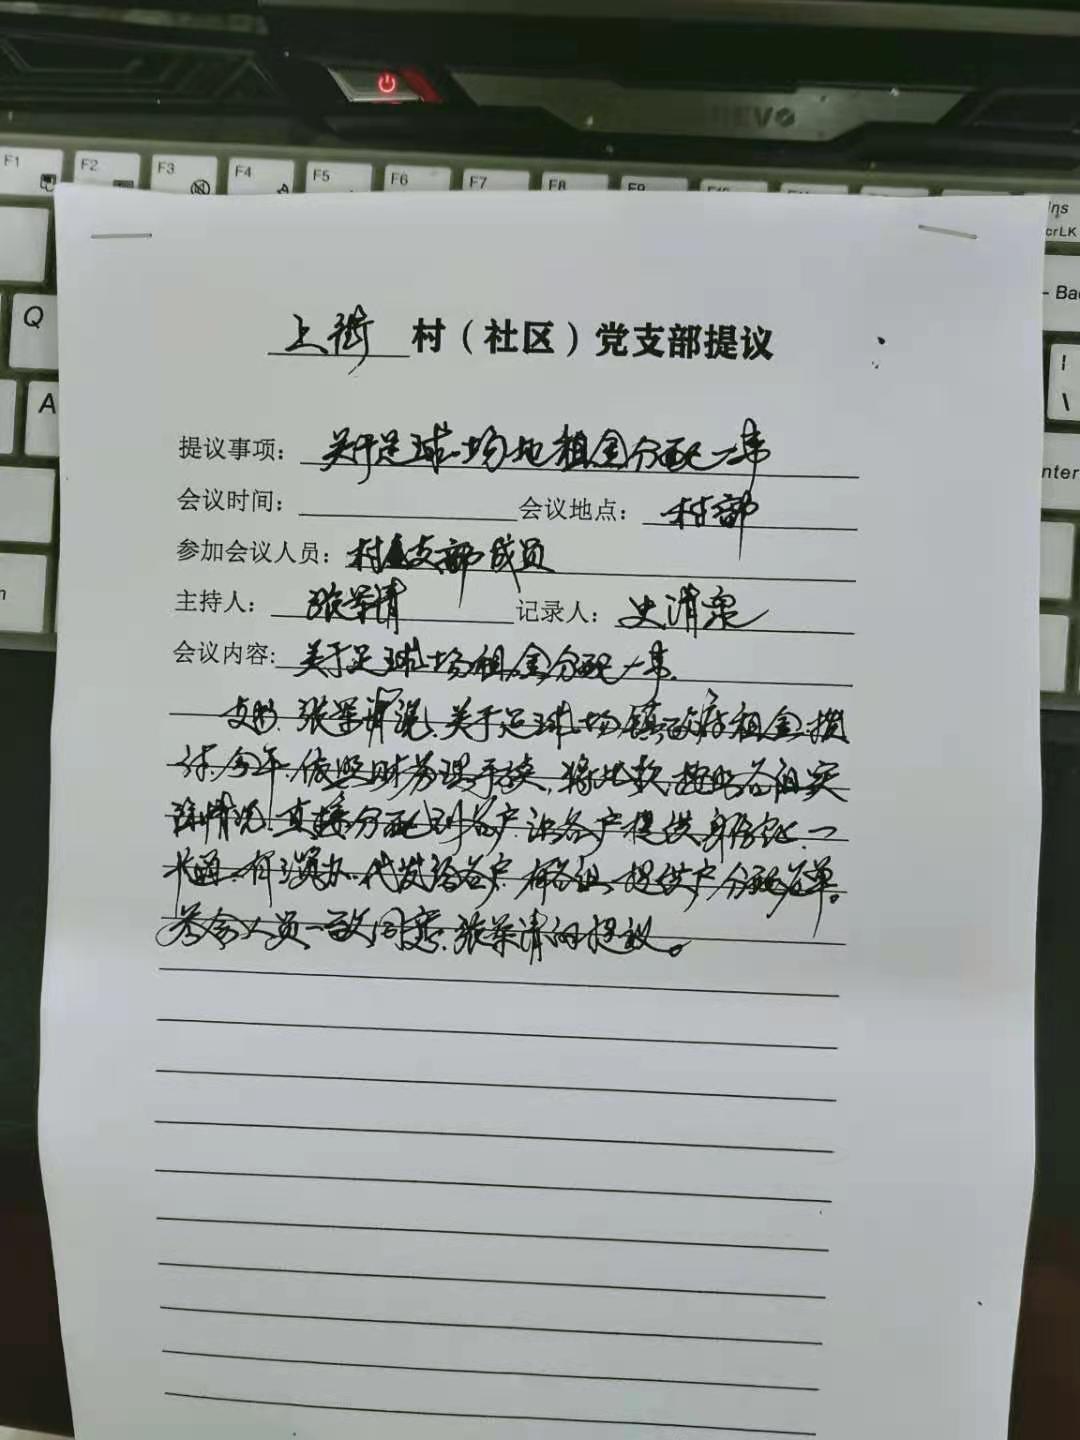 F1 F2 F3 F4 F5 F6 F7 F8 F9
Ins
crLK
Q
A
Ba
nter
上街 村（社区）党支部提议
提议事项： 关于足球场地租金分配一事
会议时间： 会议地点： 村部
参加会议人员： 村支部成员
主持人： 张荣清 记录人： 史清泉
会议内容： 关于足球场租金分配一事
支书 张荣清说、关于足球场镇政府租金、
今年、依照财务 手续、将此款、按照各组实
际情况、直接分配到各户、让各户提供身份证、一
卡通、 代发给各户、 各组、提供户分配名单。
参会人员一致同意、张荣清的提议。